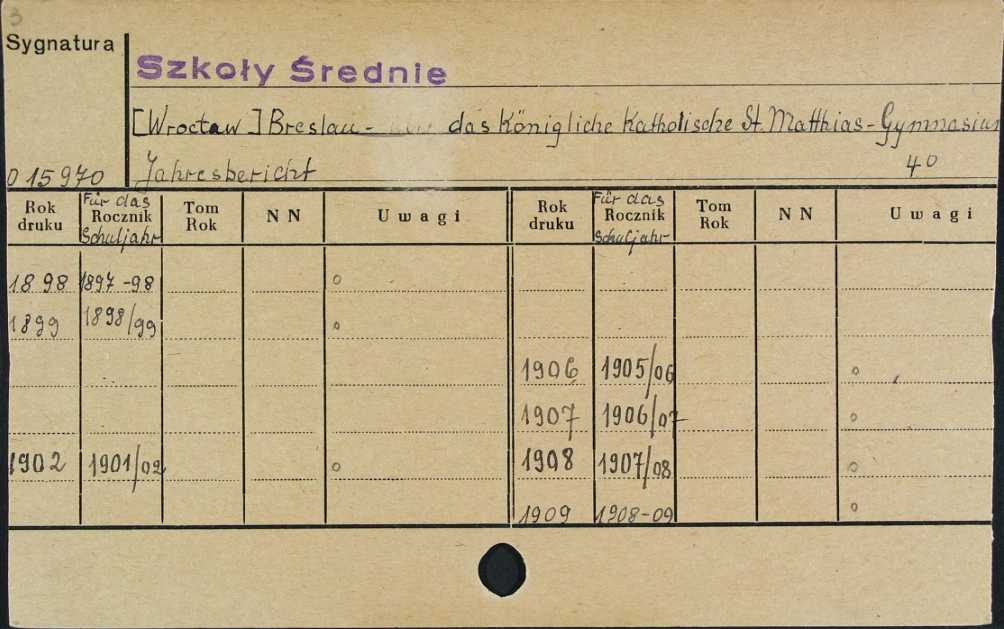 3
Sygnatura
Szkoły Średnie
[Wrocław] Breslau - das Königliche Katholische St. Matthias - Gymnasium
Jahresbericht 4°
0 15970
Rok druku Für das Rocznik Schuljahr Tom Rok NN Uwagi Rok druku Für das Rocznik Schuljahr Tom Rok NN Uwagi
1898 1897-98 o
1899 1898/99 o
1906 1905/06 o
1907 1906/07 o
1902 1901/02 o 1908 1907/08 o
1909 1908-09 o